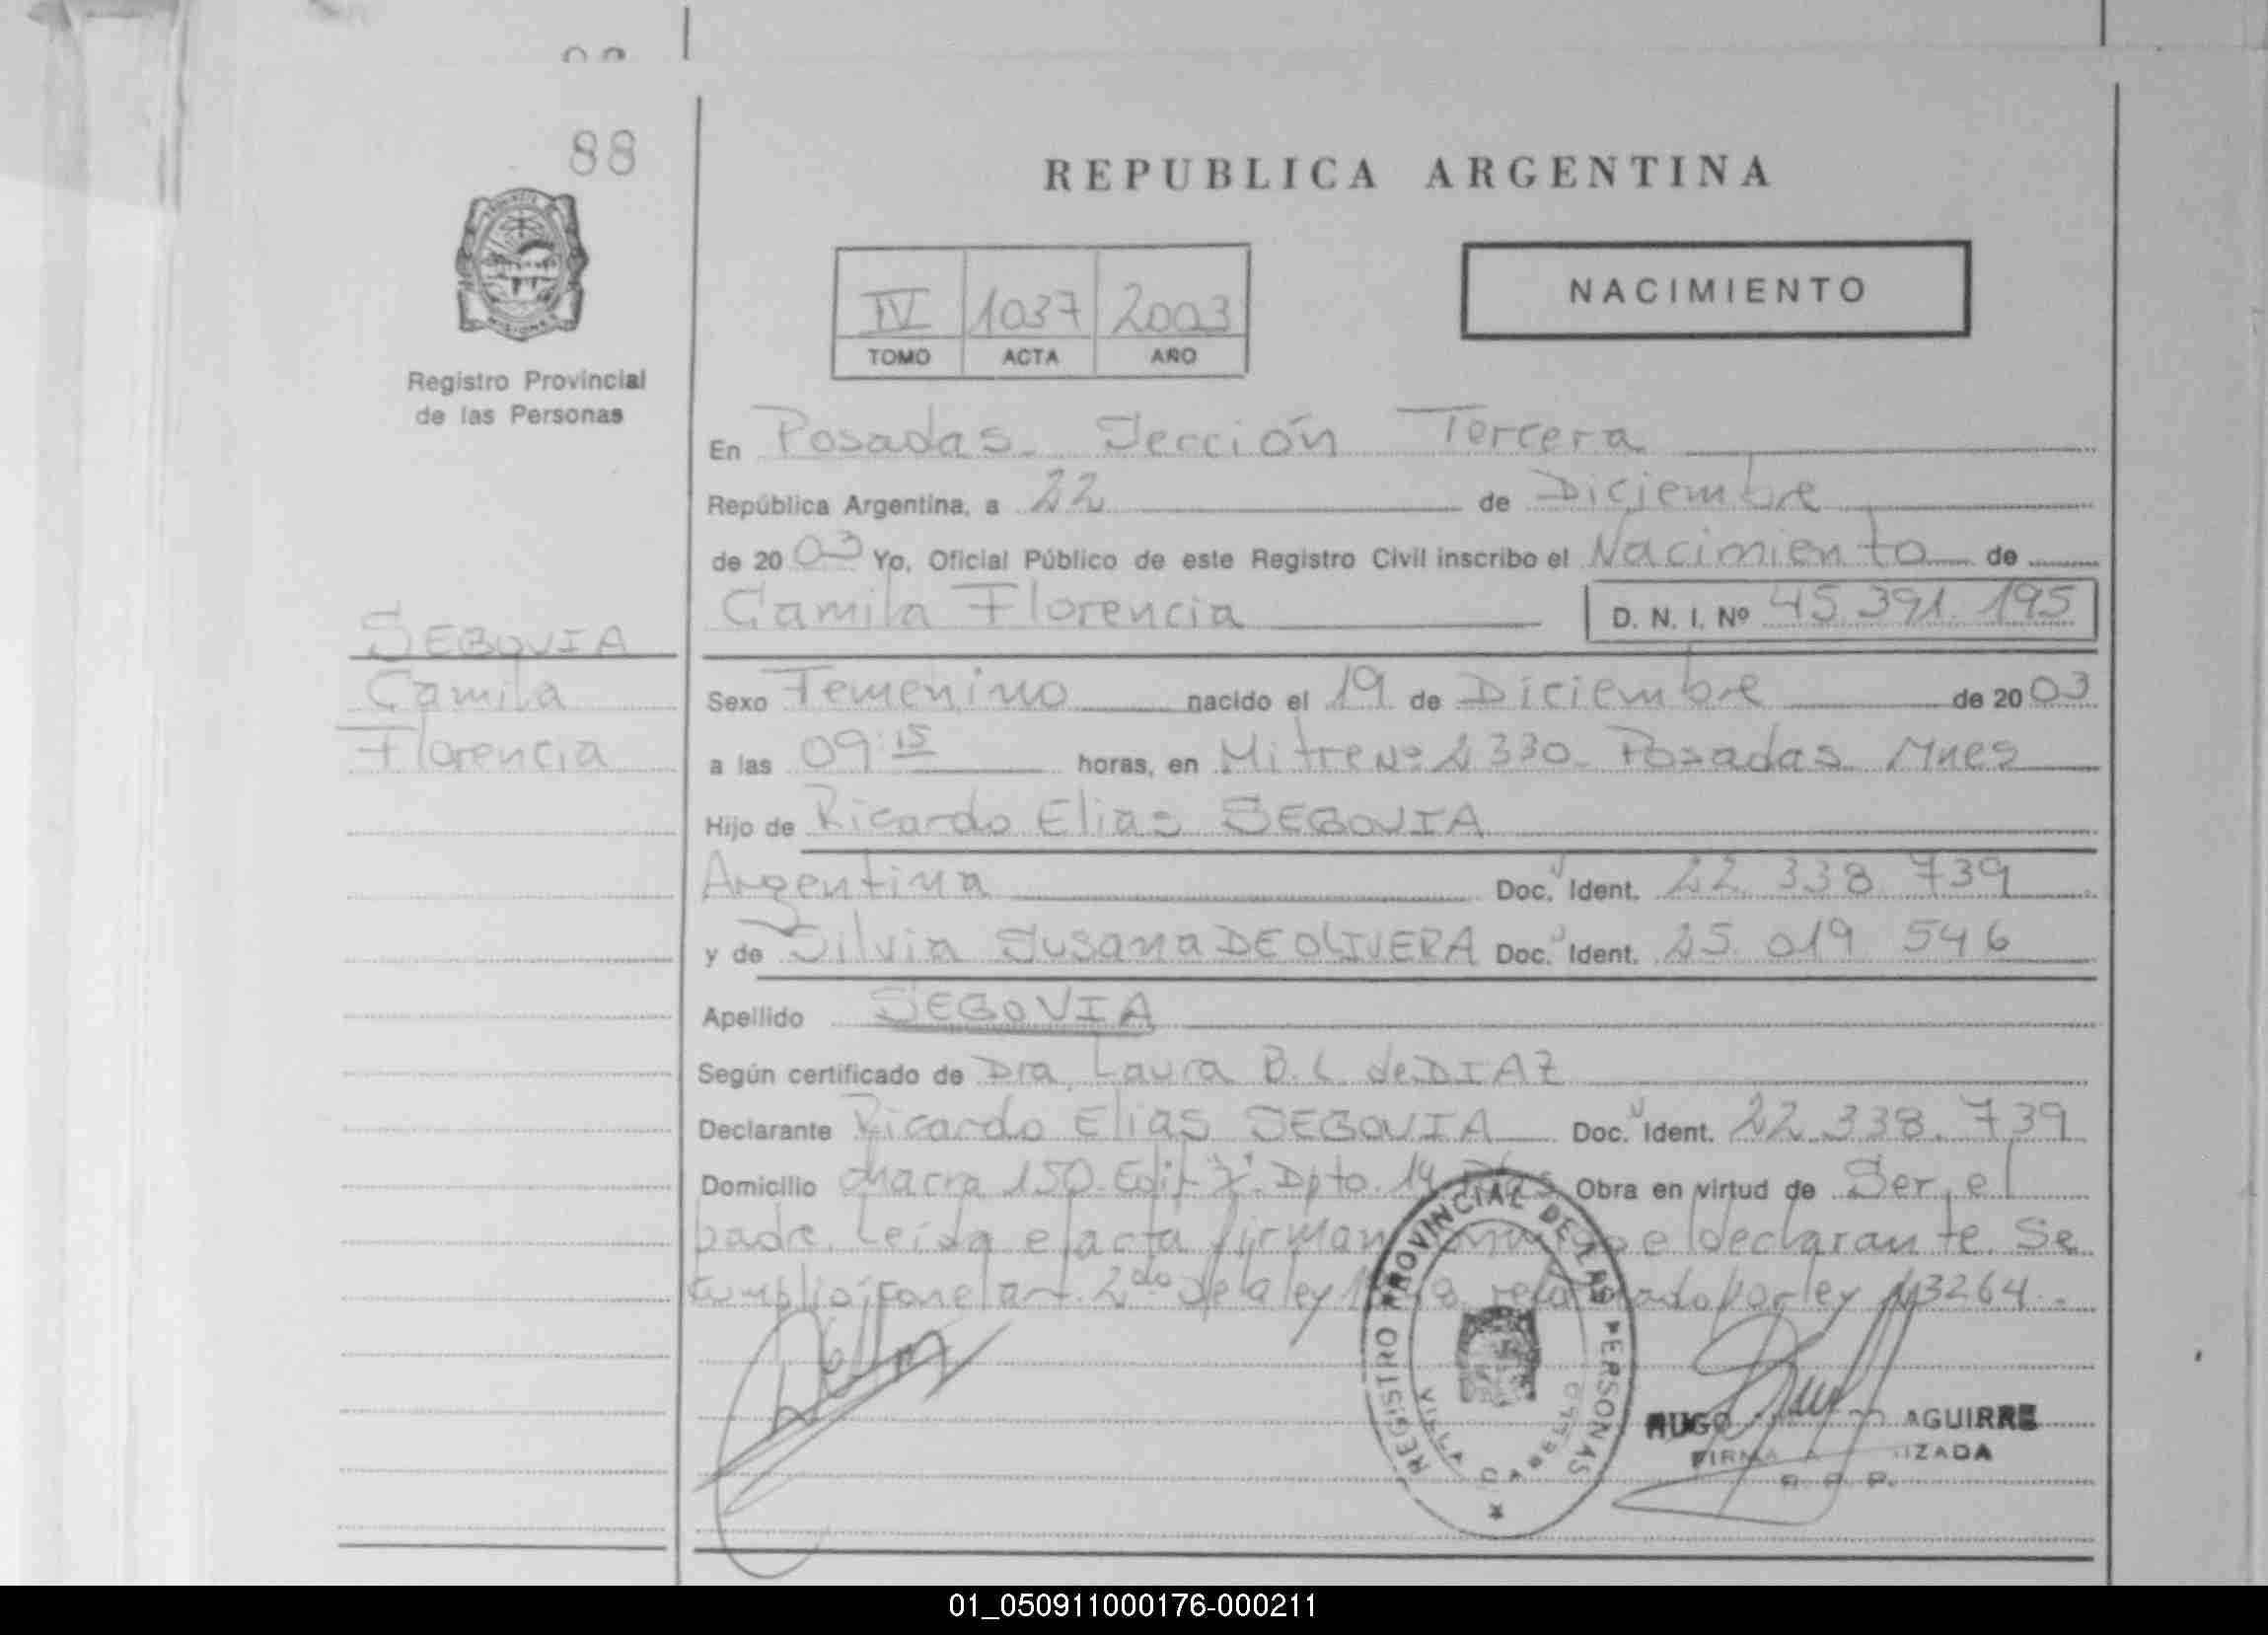 88
REPUBLICA ARGENTINA
NACIMIENTO
IV 1037 2003
TOMO ACTA AÑO
MISIONES
Registro Provincial
de las Personas
En Posadas. Sección Tercera
República Argentina, a 22 de Diciembre
de 2003 Yo, Oficial Público de este Registro Civil inscribo el Nacimiento de
Camila Florencia D. N. I. Nº 45.391.195
SEGOVIA
Camila
Florencia
Sexo Femenino nacido el 19 de Diciembre de 2003
a las 09:15 horas, en Mitre Nº 2330. Posadas Mnes
Hijo de Ricardo Elias SEGOVIA
Argentina Doc. Ident. 22 338 739
y de Silvia Susana DE OLIVERA Doc. Ident. 25 019 546
Apellido SEGOVIA
Según certificado de Dra. Laura B. L. de DIAZ
Declarante Ricardo Elias SEGOVIA Doc. Ident. 22.338.739
Domicilio chacra 150. Edif Dpto. 14 Obra en virtud de Ser el
padre. Leída el acta firman el declarante. Se
cumplió con el art. 2do de la ley por ley 13264.
REGISTRO PROVINCIAL DE LAS PERSONAS
VILLA CABELLO
HUGO AGUIRRE
FIRMA
R. P. P.
01_050911000176-000211